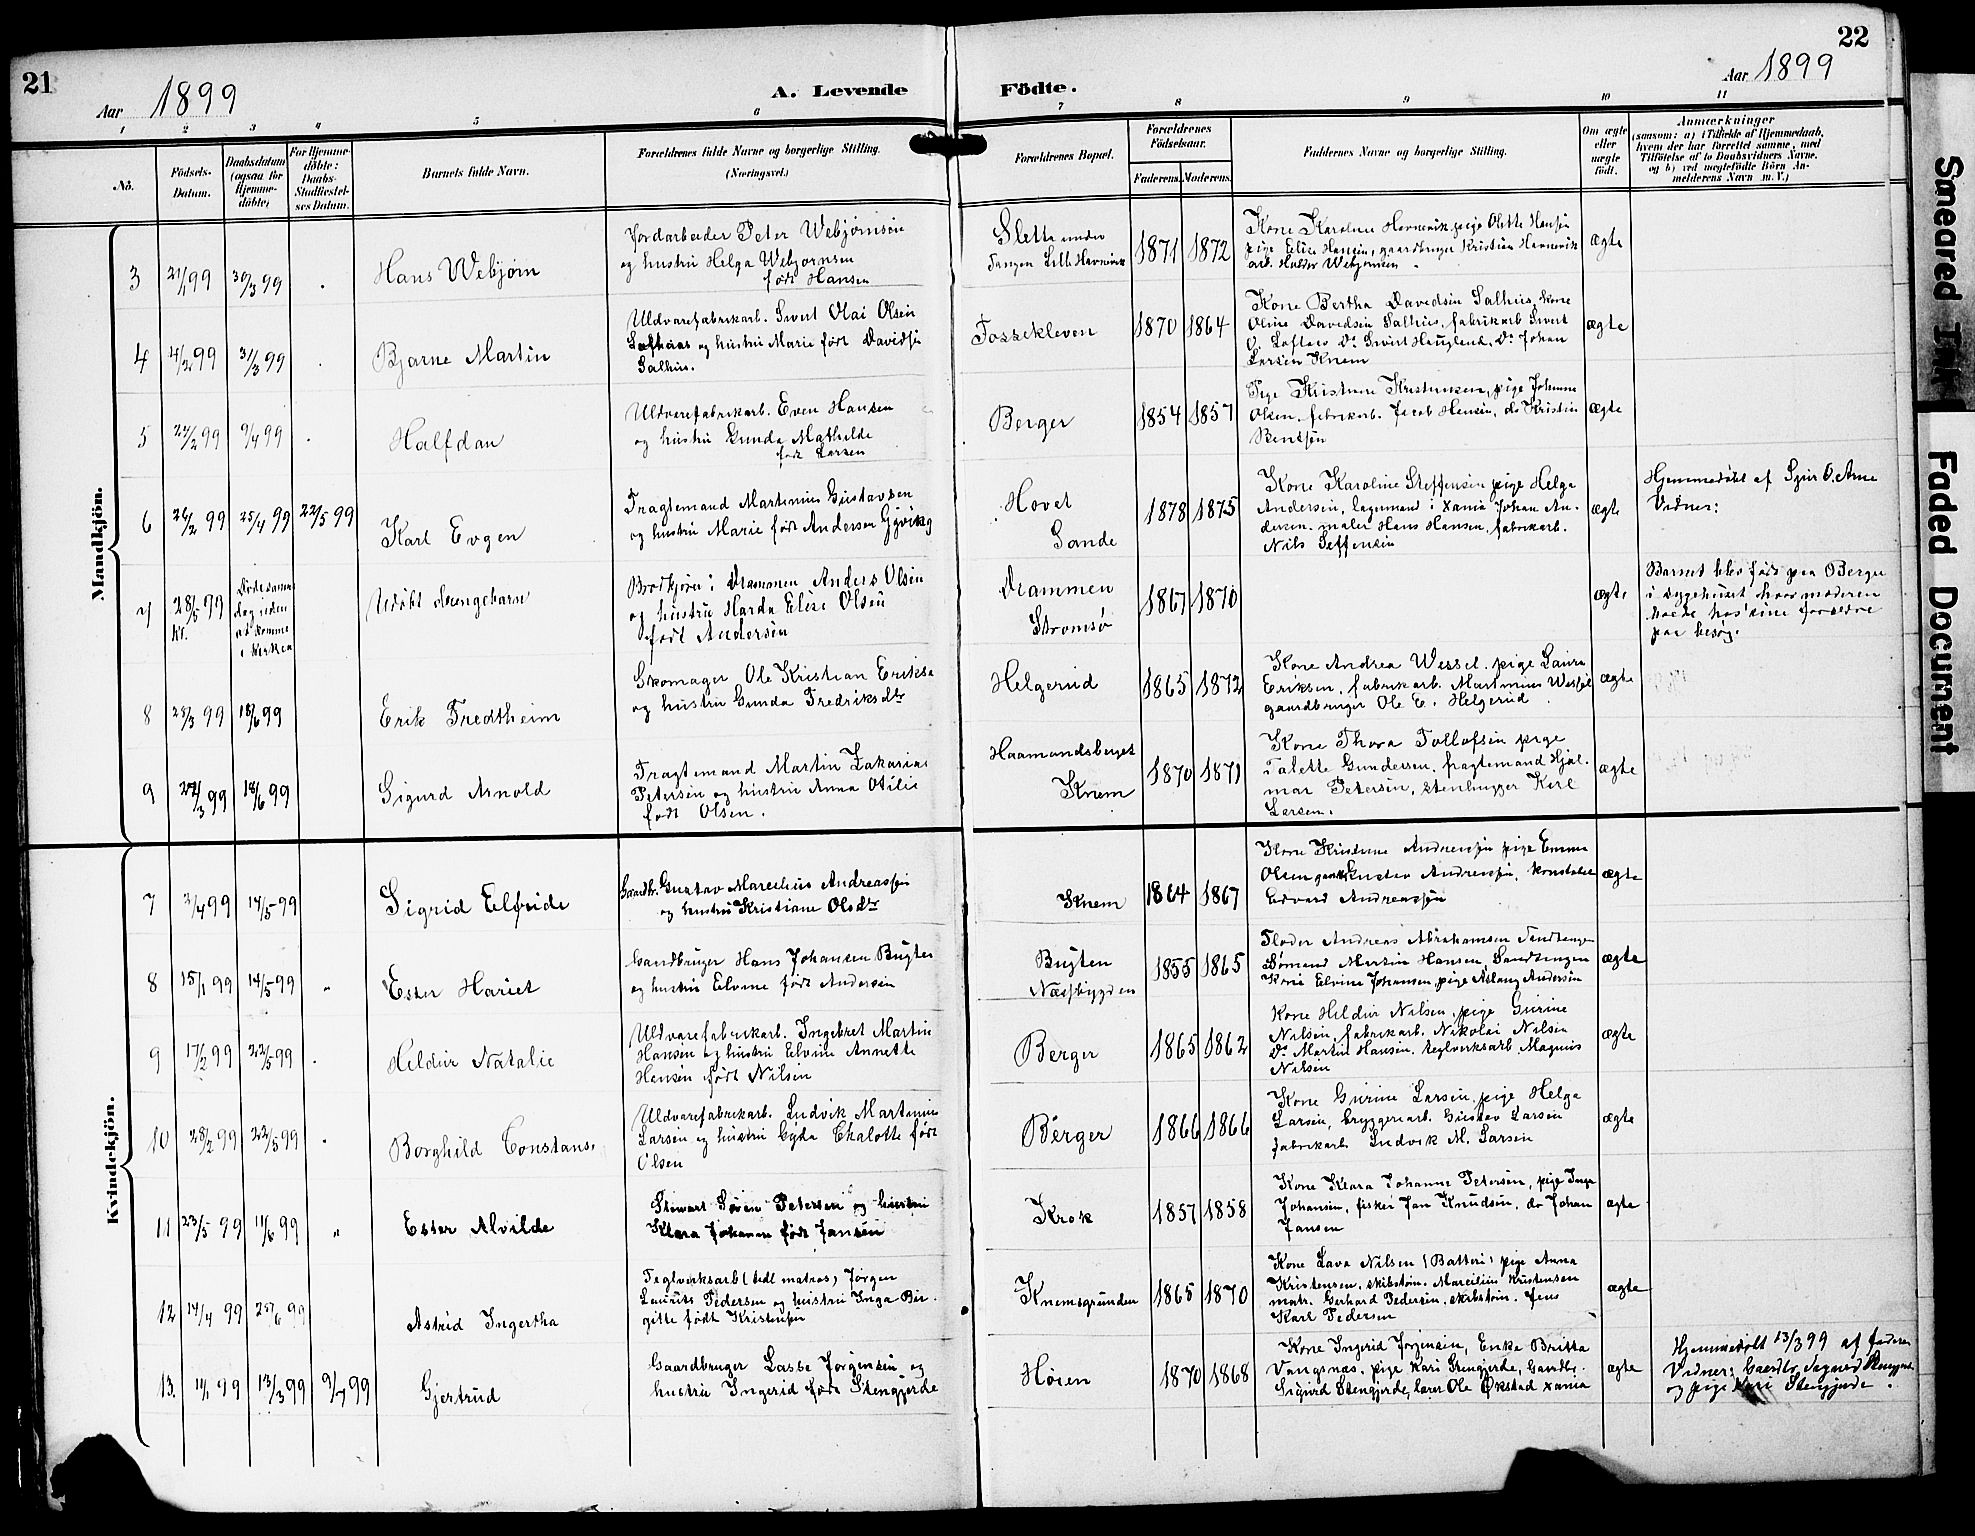 21
Aar 1899
A. Levende
Födte.
22
Aar 1899
1 2 3 4 5 6 7 8 9 10 11
No.
Födsels-
Datum.
Daabsdatum
(ogsaa for
Hjemme-
döbte)
For Hjemme-
döbte:
Daabs-
Stadfæstel-
ses Datum.
Barnets fulde Navn.
Forældrenes fulde Navne og borgerlige Stilling.
(Næringsvei.)
Forældrenes Bopæl.
Forældrenes
Födselsaar.
Faderens.
Moderens.
Faddernes Navne og borgerlige Stilling.
Om ægte
eller
uægte
födt.
Anmærkninger
(saasom: a) i Tilfælde af Hjemmedaab,
hvem der har forrettet samme, med
Tilföielse af to Daabsvidners Navne,
og b) ved uægtefödte Börn An-
melderens Navn m. V.)
Mandkjön.
3
21/1 99
30/3 99
Hans Webjørn
Jordarbeider Peter Webjørnsen
og hustru Helga Webjørnsen
født Hansen
Sletta under
Tangen Lille Havnevik
1871
1872
Kone Karoline Havnevik, pige Olette Hansen
pige Elise Hansen, gaardbruger Kristian Havnevik
arb. Halder Webjørnsen
ægte
4
4/2 99
31/3 99
Bjarne Martin
Uldvarefabrikarb. Sivert Olai Olsen
Lofthaas og hustru Marie født Davidsen
Salhus.
Fossekleven
1870
1864
Kone Bertha Davidsen Salhus, kone
Oline Davidsen Salhus, fabrikarb Sivert
O. Loftaas Do Sivert Haugland, Do Johan
Larsen Knem
ægte
5
9/4 99
Halfdan
Uldvarefabrikarb. Even Hansen
og hustru Gunda Mathilde
født Larsen
Berger
1854
1857
Pige Kristine Kristensen, pige Johanne
Olsen, fabrikarb. Jacob Hansen, do Kristin
Bentsen
ægte
6
26/2 99
25/4 99
22/5 99
Karl Evgen
Fragtemand Martinius Gustavsen
og hustru Marie født Andersen Gjevikg
Hovet
Sande
1878
1875
Kone Karoline Steffensen pige Helga
Andersen, lagermand i Xania Johan An-
dersen. maler Hans Hansen, fabrikarb.
Nils Seffensen
ægte
Hjemmedøbt af Sgur O. Arne
Vidner:
7
28/5 99
kl.
Døde samme
dag uden
at komme
i kirken
Udøbt drengebarn
Brødkjører i Drammen Anders Olsen
og hustru Harda Elise Olsen
født Andersen
Drammen
Strømsø
1867
1870
ægte
Barnet blev født paa Berger
i sygehuset hvor moderen
havde hos sine forældre
paa besøg.
8
23/3 99
18/6 99
Erik Fredtheim
Skomager Ole Kristian Eriksen
og hustru Gunda Fredriksdtr
Helgerud
1865
1872
Kone Andrea Wessel. pige Laura
Eriksen, fabrikarb. Martinius Wessel
gaardbruger Ole E. Helgerud
ægte
9
27/3 99
18/6 99
Sigurd Arnold
Fragtemand Martin Zakarias
Petersen og hustru Anna Otilie
født Olsen.
Haamandsberget
Knem
1870
1871
Kone Thora Tollofsen pige
Talette Gundersen, fragtemand Hjal-
mar Petersen, stenhugger Karl
Larsen.
ægte
Kvindekjön.
7
3/4 99
14/5 99
Sigrid Elfride
Gaardbr. Gustav Marelius Andreassen
og hustru Kristiane Olsdtr
Knem
1864
1867
Kone Kristiane Andreassen pige Emma
Olsen gaardbr Gustav Andreassen, konstabel
Edvard Andreassen
ægte
8
15/1 99
14/5 99
"
Ester Hariet
Gaardbruger Hans Johansen Bugten
og hustru Elvine født Andersen
Bugten
Næssbygden
1855
1865
Floder Andreas Abrahamsen Sandtangen
Sømand Martin Hansen, Sandtangen
Kone Elvine Johansen, pige Aslaug Andersen
ægte
9
17/2 99
22/5 99
Heldur Natalie
Uldvarefabrikarb. Ingebret Martin
Hansen og hustru Elvine Annette
Hansen født Nilsen
Berger
1865
1862
Kone Heldur Nilsen, pige Gurine
Nilsen, fabrikarb. Nikolai Nilsen
Do Martin Hansen, teglverksarb Magnus
Nilsen
ægte
10
28/2 99
22/5 99
Borghild Constanse
Uldvarefabrikarb. Ludvik Martinius
Larsen og hustru Gyda Chalotte født
Olsen
Berger
1866
1866
Kone Gurine Larsen, pige Helga
Larsen, bryggeriarb. Gustav Larsen
fabrikarb. Ludvik M. Larsen
ægte
11
23/5 99
11/6 99
"
Ester Alvilde
Stewart Søren Petersen og hustru
Klara Johanne født Jansen
Krok
1857
1858
Kone Klara Johanne Petersen, pige Inga
Johansen, fisker Jan Knudsen, do Johan
Jansen
ægte
12
14/4 99
25/6 99
Astrid Ingertha
Teglverksarb (tidl matros) Jørgen
Laurits Pedersen og hustru Inga Bir-
gitte født Kristensen
Knemsgrunden
1865
1870
Kone Lava Nilsen (Batteri) pige Anna
Kristensen, skibstøm. Marcilius Kristensen
matr. Gerhard Pedersen, skibstøm. Jens
Karl Pedersen
ægte
13.
11/1 99
13/3 99
9/7 99
Gjertrud
Gaardbruger Lasse Jørgensen og
hustru Ingerid født Stengjerde
Høien
1870
1868
Kone Ingerid Jørgensen, Enke Britta
Vangsnæs, pige Kari Stengjerde, Gaardbr.
Sigurd Stengjerde, lærer Ole Økstad Xania
ægte
Hjemmedøbt 13/3 99 af faderen
Vidner: Gaardbr. Stengjerde
og pige Kari Stengjerde.
Smeared Ink
Faded Document